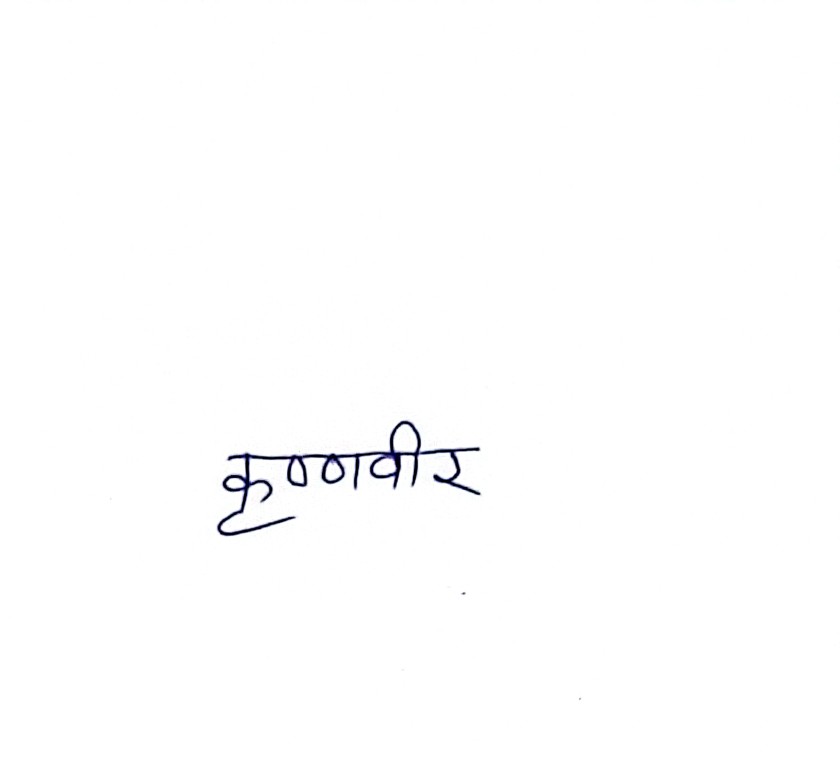 कृष्णवीर